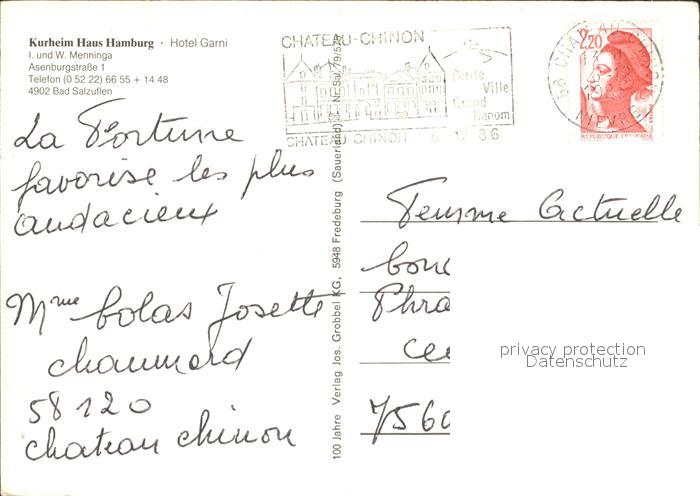 Kurheim Haus Hamburg · Hotel Garni
I. und W. Menninga
Asenburgstraße 1
Telefon (0 52 22) 66 55 + 14 48
4902 Bad Salzuflen
CHATEAU-CHINON
Petite
Ville
Grand
Renom
CHATEAU CHINON 6 12 86
58 CHATEAU
NIEVRE
2,20
REPUBLIQUE FRANÇAISE
La Fortune
favorise les plus
audacieux
Mme Colas Josette
Chaumard
58120
Chateau Chinon
100 Jahre Verlag Jos. Grobbel KG, 5948 Fredeburg (Sauerland)
Femme Actuelle
Phra
Ce
7560
privacy protection
Datenschutz